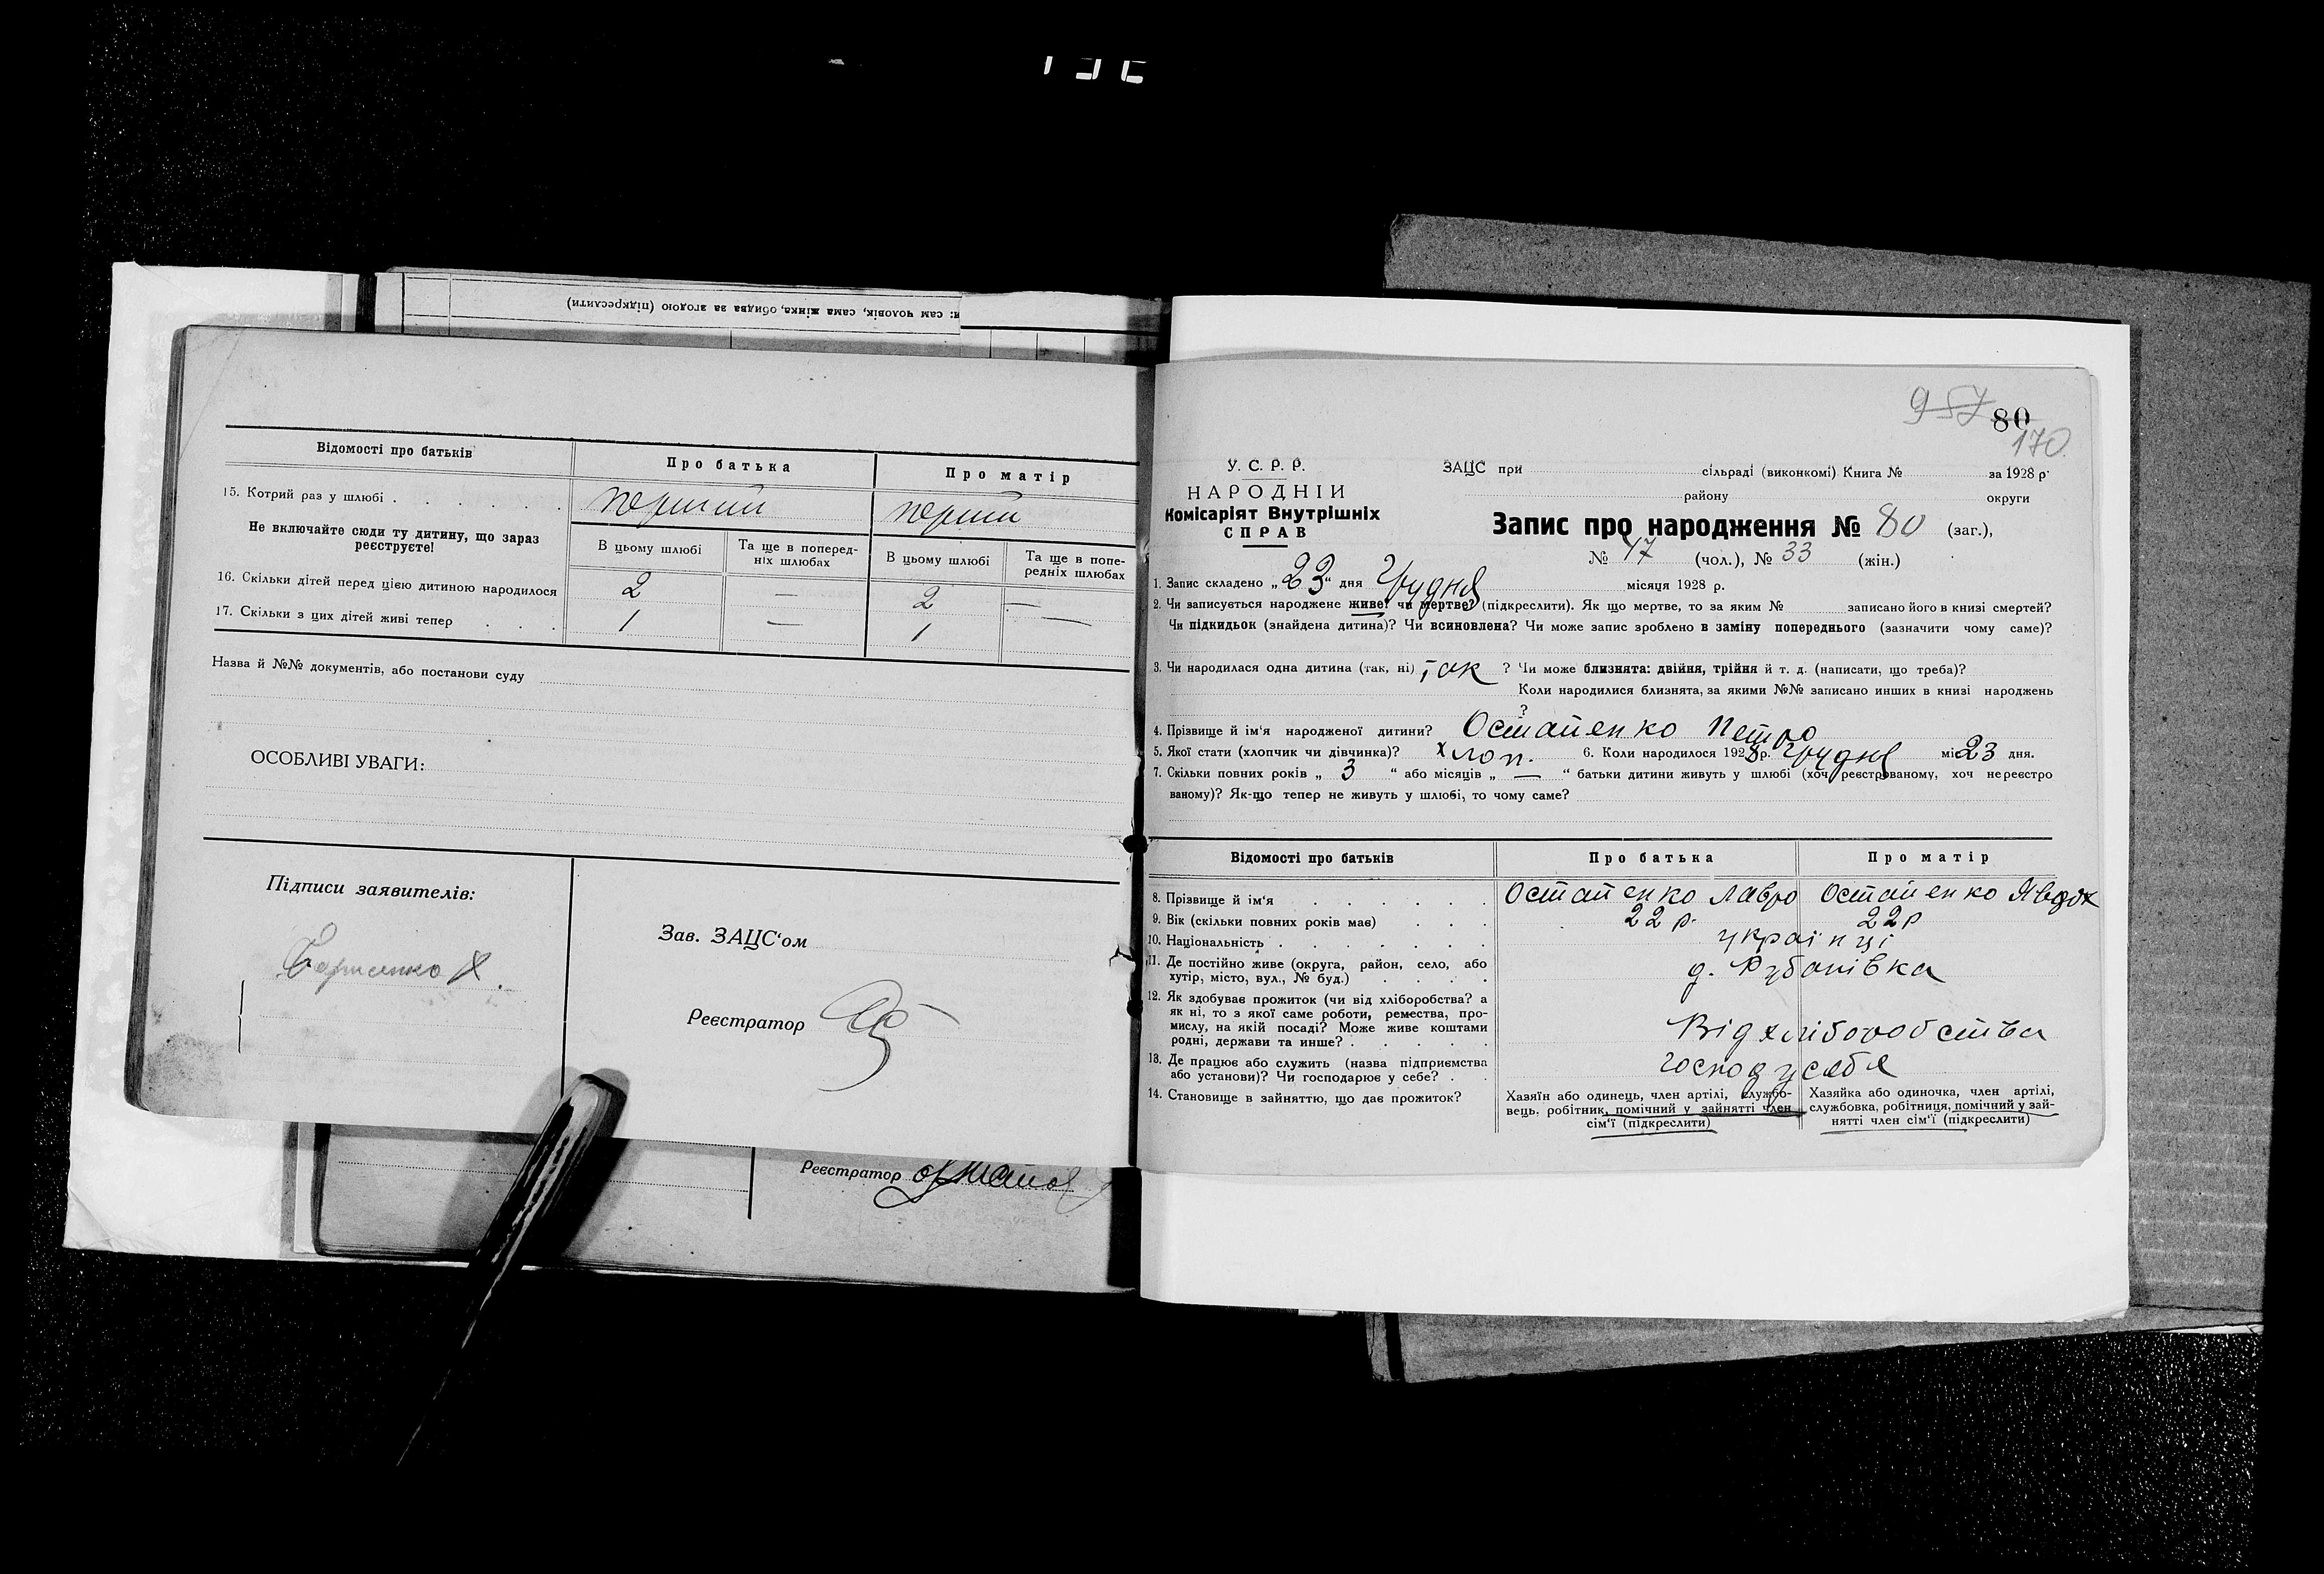 и: сам чоловік, сама жінка, обидва за згодою (підкреслити)
Відомості про батьків
Про батька
Про матір
15. Котрий раз у шлюбі . . . . . . .
перший
перший
Не включайте сюди ту дитину, що зараз
реєструєте!
В цьому шлюбі
Та ще в поперед-
ніх шлюбах
В цьому шлюбі
Та ще в попе-
редніх шлюбах
16. Скільки дітей перед цією дитиною народилося
2 — 2 —
17. Скільки з цих дітей живі тепер . . .
1 — 1 —
Назва й №№ документів, або постанови суду
ОСОБЛИВІ УВАГИ:
Підписи заявителів:
Зав. ЗАЦС'ом
Реєстратор
Реєстратор
957 80
170
У. С. Р. Р.
НАРОДНІЙ
Комісаріят Внутрішніх
СПРАВ
ЗАЦС при сільраді (виконкомі) Книга № за 1928 р.
району округи
Запис про народження № 80 (заг.),
№ 47 (чол.), № 33 (жін.)
1. Запис складено „23" дня Грудня місяця 1928 р.
2. Чи записується народжене живе? чи мертве? (підкреслити). Як що мертве, то за яким № записано його в книзі смертей?
Чи підкидьок (знайдена дитина)? Чи всиновлена? Чи може запис зроблено в заміну попереднього (зазначити чому саме)?
3. Чи народилася одна дитина (так, ні) так ? Чи може близнята: двійня, трійня й т. д. (написати, що треба)?
Коли народилися близнята, за якими №№ записано инших в книзі народжень
?
4. Прізвище й ім'я народженої дитини? Остапенко Петро
5. Якої стати (хлопчик чи дівчинка)? Хлоп. 6. Коли народилося 1928 р. Грудня міс 23 дня.
7. Скільки повних років „ 3 " або місяців „ — " батьки дитини живуть у шлюбі (хоч реєстрованому, хоч нереєстро
ваному)? Як-що тепер не живуть у шлюбі, то чому саме?
Відомості про батьків
Про батька
Про матір
8. Прізвище й ім'я . . . . . .
Остапенко Лавро Остапенко Явдох
9. Вік (скільки повних років має) . . .
22 р. 22 р
10. Національність . . . . . . .
українці
11. Де постійно живе (округа, район, село, або
хутір, місто, вул., № буд.) . . . .
д. Рубанівка
12. Як здобуває прожиток (чи від хліборобства? а
як ні, то з якої саме роботи, ремества, про-
мислу, на якій посаді? Може живе коштами
родні, держави та инше? . . . . .
Від хліборобства
13. Де працює або служить (назва підприємства
або установи)? Чи господарює у себе? . .
господ у себе
14. Становище в зайняттю, що дає прожиток?
Хазяїн або одинець, член артілі, службо-
вець, робітник, помічний у зайнятті член
сім'ї (підкреслити)
Хазяйка або одиночка, член артілі,
службовка, робітниця, помічний у зай-
нятті член сім'ї (підкреслити)